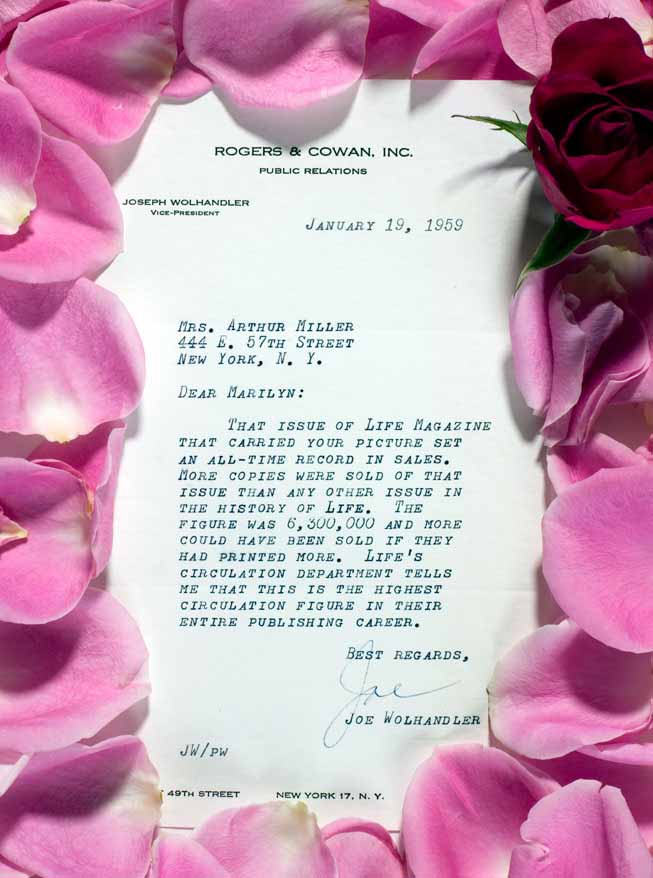 ROGERS & COWAN, INC.
PUBLIC RELATIONS
JOSEPH WOLHANDLER
VICE-PRESIDENT
JANUARY 19, 1959
MRS. ARTHUR MILLER
444 E. 57TH STREET
NEW YORK, N. Y.
DEAR MARILYN:
THAT ISSUE OF LIFE MAGAZINE
THAT CARRIED YOUR PICTURE SET
AN ALL-TIME RECORD IN SALES.
MORE COPIES WERE SOLD OF THAT
ISSUE THAN ANY OTHER ISSUE IN
THE HISTORY OF LIFE. THE
FIGURE WAS 6,300,000 AND MORE
COULD HAVE BEEN SOLD IF THEY
HAD PRINTED MORE. LIFE'S
CIRCULATION DEPARTMENT TELLS
ME THAT THIS IS THE HIGHEST
CIRCULATION FIGURE IN THEIR
ENTIRE PUBLISHING CAREER.
BEST REGARDS,
Joe
JOE WOLHANDLER
JW/PW
49TH STREET NEW YORK 17, N. Y.